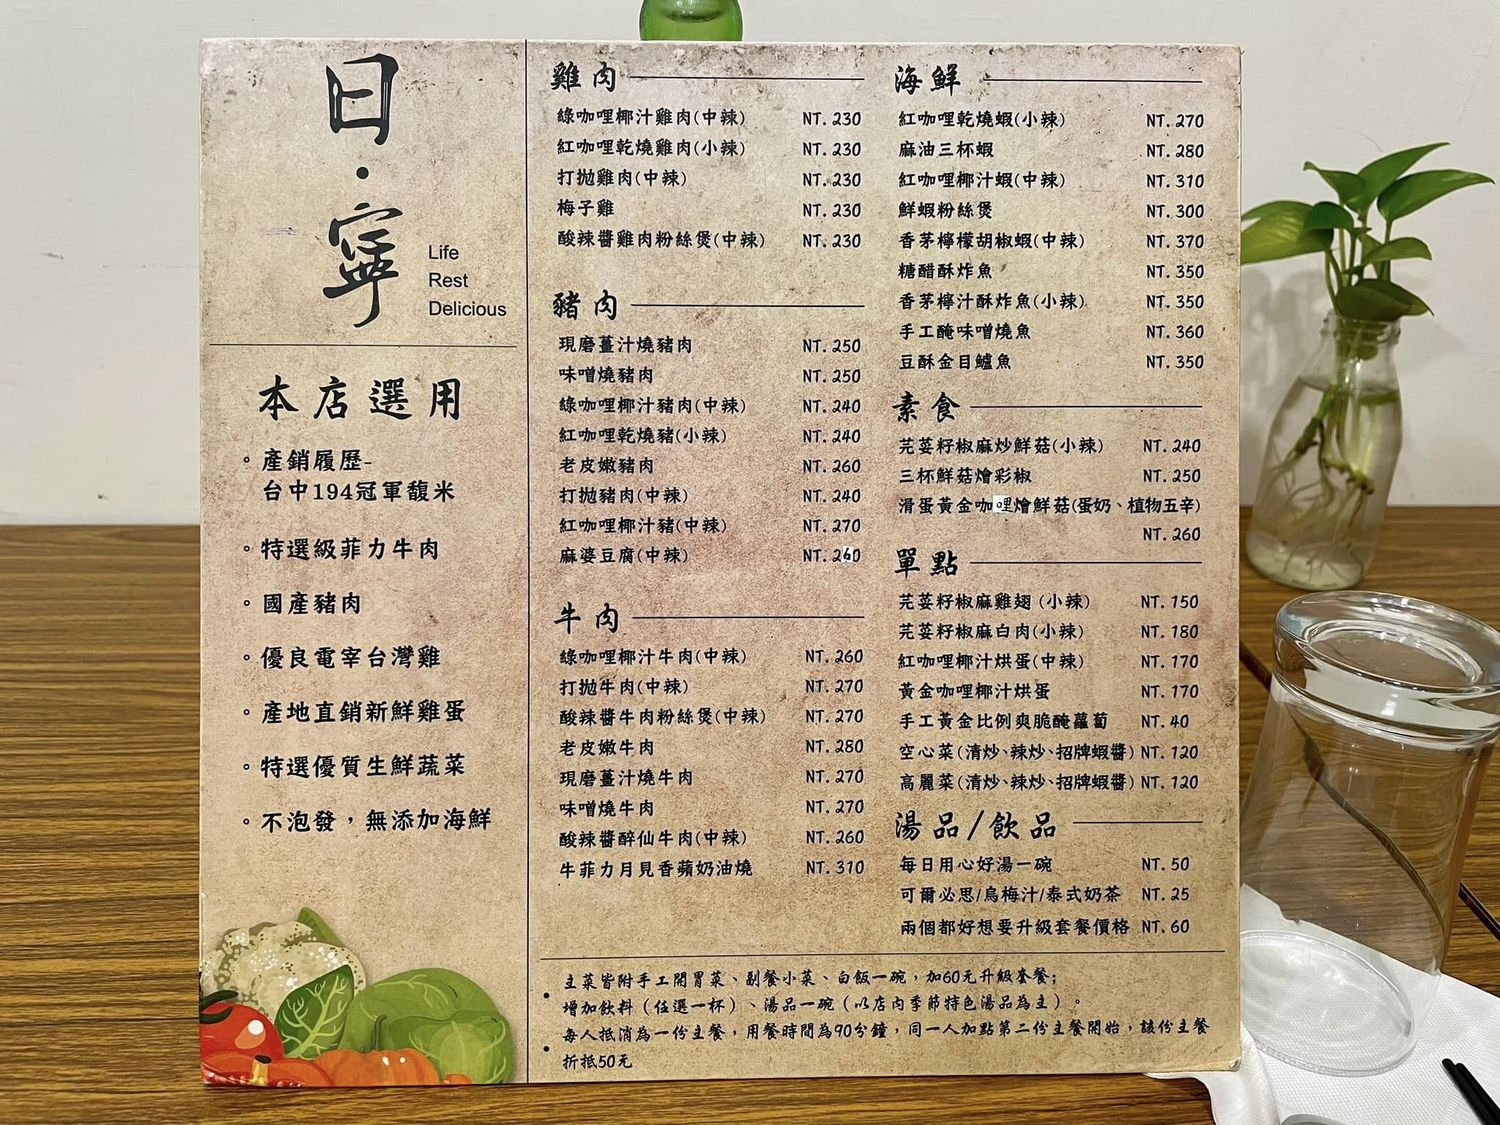 日・寧
Life
Rest
Delicious
本店選用
。產銷履歷-
台中194冠軍馥米
。特選級菲力牛肉
。國產豬肉
。優良電宰台灣雞
。產地直銷新鮮雞蛋
。特選優質生鮮蔬菜
。不泡發，無添加海鮮
雞肉
綠咖哩椰汁雞肉(中辣) NT. 230
紅咖哩乾燒雞肉(小辣) NT. 230
打拋雞肉(中辣) NT. 230
梅子雞 NT. 230
酸辣醬雞肉粉絲煲(中辣) NT. 230
豬肉
現磨薑汁燒豬肉 NT. 250
味噌燒豬肉 NT. 250
綠咖哩椰汁豬肉(中辣) NT. 240
紅咖哩乾燒豬(小辣) NT. 240
老皮嫩豬肉 NT. 260
打拋豬肉(中辣) NT. 240
紅咖哩椰汁豬(中辣) NT. 270
麻婆豆腐(中辣) NT. 260
牛肉
綠咖哩椰汁牛肉(中辣) NT. 260
打拋牛肉(中辣) NT. 270
酸辣醬牛肉粉絲煲(中辣) NT. 270
老皮嫩牛肉 NT. 280
現磨薑汁燒牛肉 NT. 270
味噌燒牛肉 NT. 270
酸辣醬醉仙牛肉(中辣) NT. 260
牛菲力月見香蘋奶油燒 NT. 310
海鮮
紅咖哩乾燒蝦(小辣) NT. 270
麻油三杯蝦 NT. 280
紅咖哩椰汁蝦(中辣) NT. 310
鮮蝦粉絲煲 NT. 300
香茅檸檬胡椒蝦(中辣) NT. 370
糖醋酥炸魚 NT. 350
香茅檸汁酥炸魚(小辣) NT. 350
手工醃味噌燒魚 NT. 360
豆酥金目鱸魚 NT. 350
素食
芫荽籽椒麻炒鮮菇(小辣) NT. 240
三杯鮮菇燴彩椒 NT. 250
滑蛋黃金咖哩燴鮮菇(蛋奶、植物五辛)
NT. 260
單點
芫荽籽椒麻雞翅 (小辣) NT. 150
芫荽籽椒麻白肉(小辣) NT. 180
紅咖哩椰汁烘蛋(中辣) NT. 170
黃金咖哩椰汁烘蛋 NT. 170
手工黃金比例爽脆醃蘿蔔 NT. 40
空心菜(清炒、辣炒、招牌蝦醬) NT. 120
高麗菜(清炒、辣炒、招牌蝦醬) NT. 120
湯品/飲品
每日用心好湯一碗 NT. 50
可爾必思/烏梅汁/泰式奶茶 NT. 25
兩個都好想要升級套餐價格 NT. 60
• 主菜皆附手工開胃菜、副餐小菜、白飯一碗，加60元升級套餐；
增加飲料（任選一杯）、湯品一碗（以店內季節特色湯品為主）。
• 每人抵消為一份主餐，用餐時間為90分鐘，同一人加點第二份主餐開始，該份主餐
折抵50元